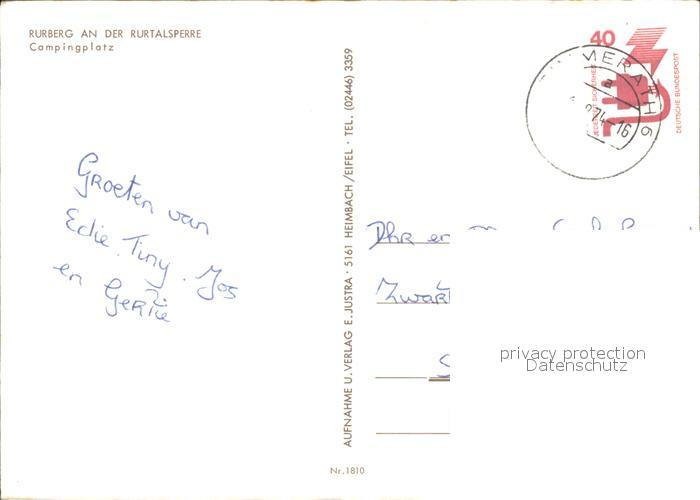 RURBERG AN DER RURTALSPERRE
Campingplatz
40
JEDERZEIT SICHERHEIT
DEUTSCHE BUNDESPOST
MERATH 6
74-16
Groeten van
Edie. Tiny. Jos
en Gerrie
AUFNAHME U. VERLAG E. JUSTRA · 5161 HEIMBACH/EIFEL · TEL. (02446) 3359
Dhr en
Zwart
privacy protection
Datenschutz
Nr. 1810